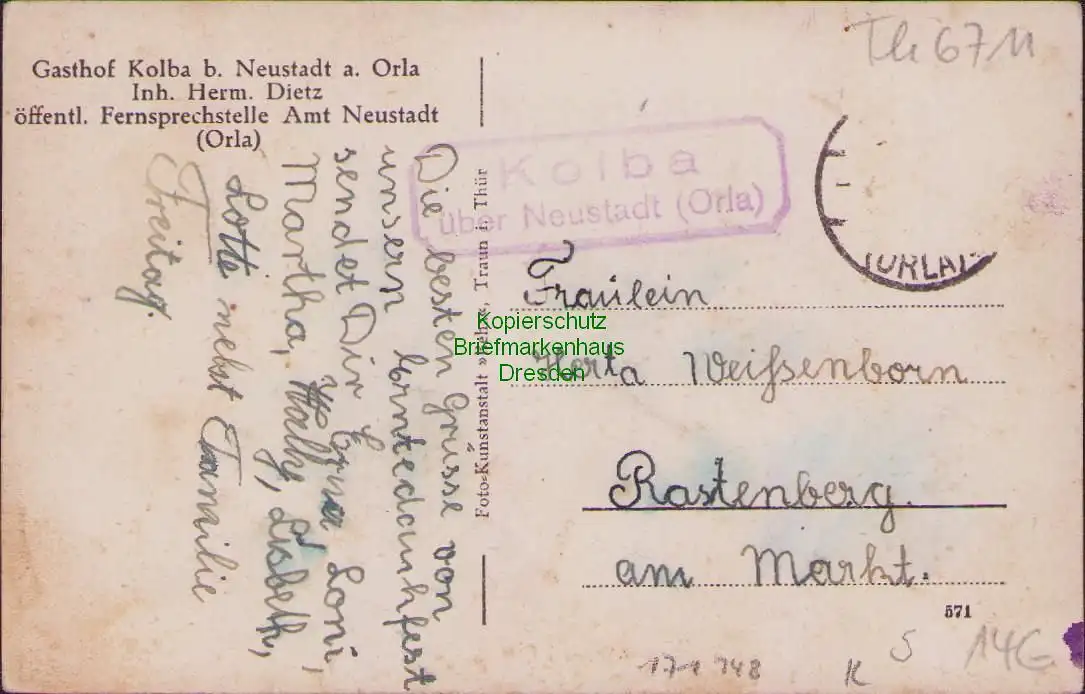 Gasthof Kolba b. Neustadt a. Orla
Inh. Herm. Dietz
öffentl. Fernsprechstelle Amt Neustadt
(Orla)
Die besten Grüsse von
unsern Erntedankfest
sendet Dir Erna Loni,
Martha, Wally, Lisbeth,
Lotte nebst Familie
Freitag.
Foto-Kunstanstalt
Traun i. Thür
Kolba
über Neustadt (Orla)
(ORLA)
Th 67 11
Fräulein
Herta Weißenborn
Rastenberg.
am Markt.
571
Kopierschutz
Briefmarkenhaus
Dresden
S 14G
171 748 K